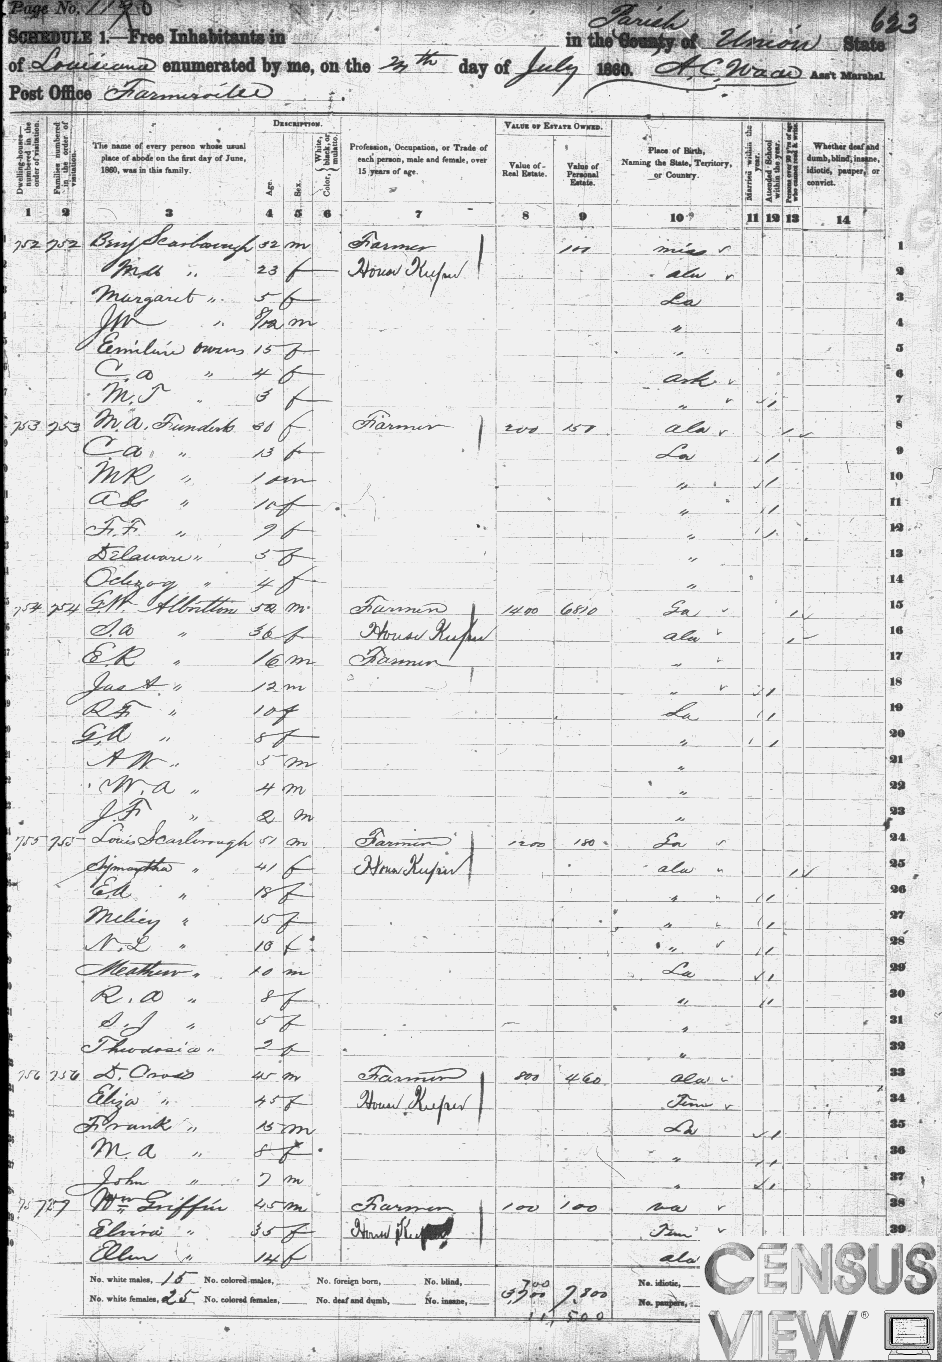 Page No. 118
SCHEDULE 1.—Free Inhabitants in in the County of Parish Union State 623
of Louisiana enumerated by me, on the 24th day of July 1860. A. C. Wade Ass't Marshal.
Post Office Farmerville
Dwelling-houses—numbered in the order of visitation. Families numbered in the order of visitation. The name of every person whose usual place of abode on the first day of June, 1860, was in this family. DESCRIPTION. Age. Sex. Color, White, black, or mulatto. Profession, Occupation, or Trade of each person, male and female, over 15 years of age. VALUE OF ESTATE OWNED. Value of Real Estate. Value of Personal Estate. Place of Birth, Naming the State, Territory, or Country. Married within the year. Attended School within the year. Persons over 20 y'rs of age who cannot read & write. Whether deaf and dumb, blind, insane, idiotic, pauper, or convict.
1 2 3 4 5 6 7 8 9 10 11 12 13 14
752 752 Benj Scarborough 32 m Farmer 100 miss 1
" 23 f House Keeper ala 2
Margaret " 5 f La 3
JW " 8/12 m " 4
Emiline Owens 15 f " 5
C. a " 4 f ark 6
M. J " 3 f " 1 7
753 753 M. A. Funderb 30 f Farmer 200 150 ala 1 8
C. a " 13 f La 1 9
MR " 10 m " 1 10
" 10 f " 1 11
F. F. " 7 f " 1 12
Delaware " 5 f " 13
" 4 f " 14
754 754 G.W. Albritton 52 m Farmer 1400 6810 Ga 1 15
S. a " 36 f House Keeper ala 1 16
E. R " 16 m Farmer " 17
Jas A. " 12 m " 1 18
R F " 10 f La 1 19
G. A " 8 f " 1 20
A W " 5 m " 21
W. a " 4 m " 22
J. F " 2 m " 23
755 755 Louis Scarborough 51 m Farmer 1200 180 Ga 24
Symantha " 41 f House Keeper ala 1 25
E. A " 18 f " 1 26
" 15 f " 1 27
N. L " 13 f " 1 28
Meathew " 10 m La 1 29
R. a " 8 f " 1 30
S. J " 5 f " 31
Theodosia " 2 f " 32
756 756 D. Cross 45 m Farmer 800 460 ala 33
Eliza " 45 f House Keeper Tenn 34
Frank " 15 m La 1 35
M. a " 8 f " 1 36
John " 7 m " 1 37
757 Wm Griffin 45 m Farmer 100 100 va 38
Elvira " 35 f House Tenn 39
Ellen " 14 f ala
No. white males, 15 No. colored males, No. foreign born, No. blind, 700 No. idiotic,
No. white females, 25 No. colored females, No. deaf and dumb, No. insane, 3700 7,800 No. paupers,
11,500
CENSUS
VIEW®